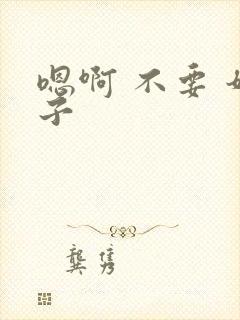 嗯啊 不要
子
龚隽